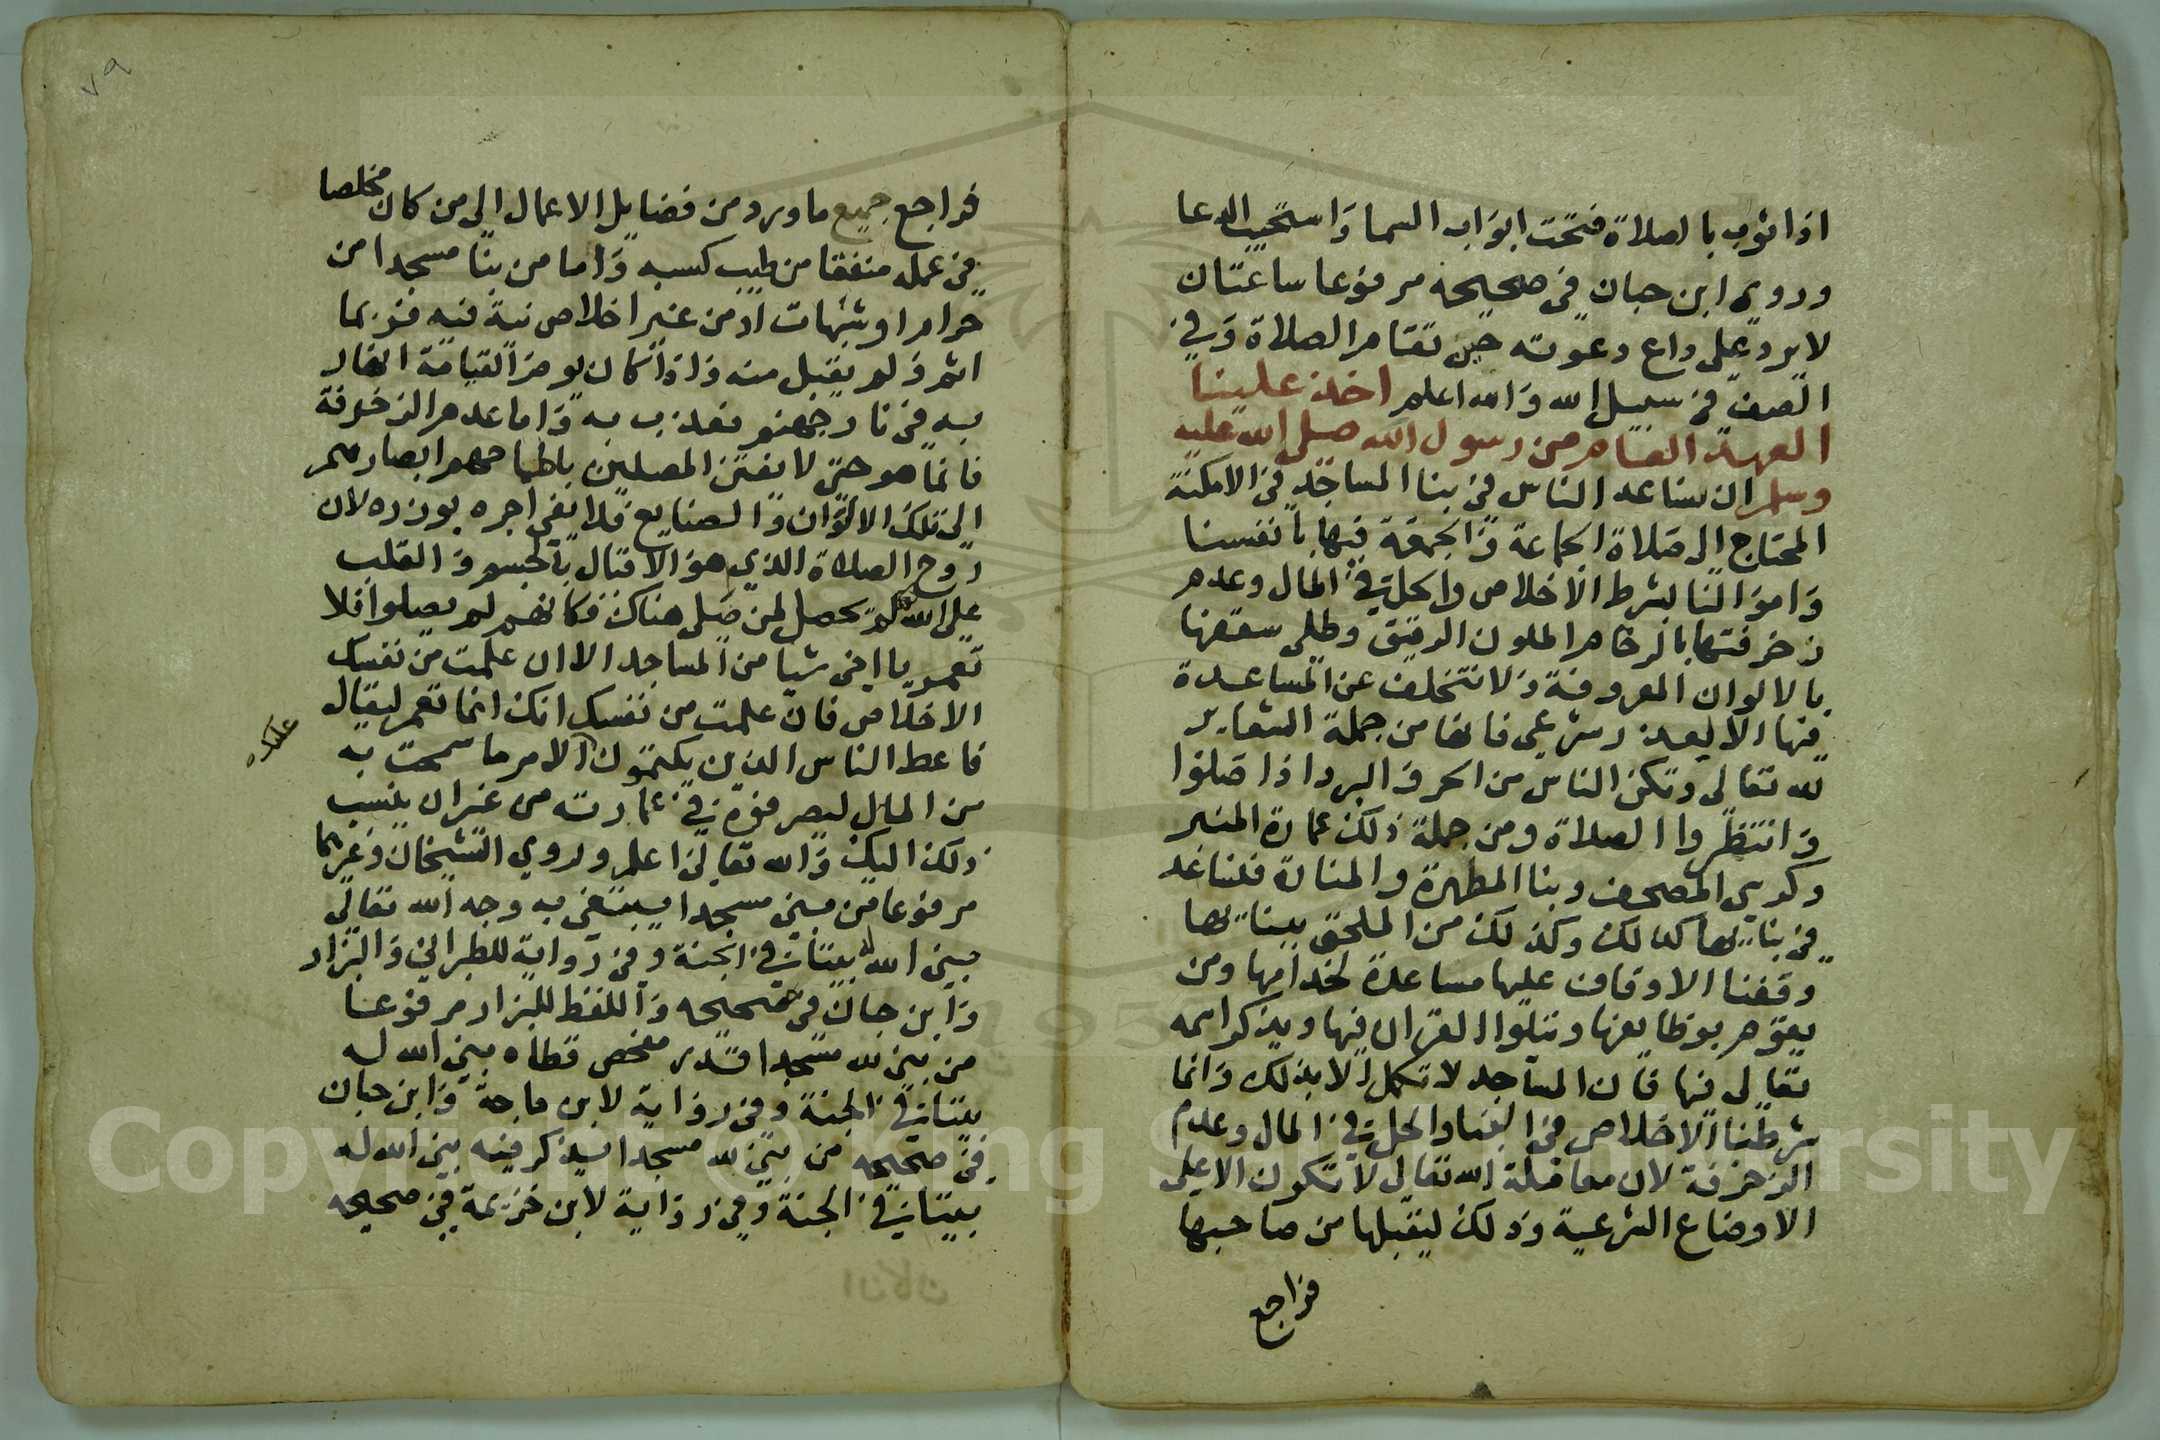 اذا ثوب بالصلاة فتحت ابواب السما واستجيب الدعا
وروى ابن حبان في صحيحه مرفوعا ساعتان
لا يرد على داع دعوته حين تقام الصلاة وفي
الصف في سبيل الله والله اعلم اخذ علينا
العهد العام من رسول الله صلى الله عليه
وسلم ان نساعد الناس في بنا المساجد في الامكنة
المحتاج الى صلاة الجماعة والجمعة فيها بانفسنا
واموالنا بشرط الاخلاص والحل في المال وعدم
زخرفتها بالرخام الملون الدقيق وطلى سقفها
بالالوان المعروفة ولا نتخلف عن المساعدة
فيها الا لعذر شرعي فانها من جملة الشعاير
لله تعالى وتكن الناس من الحر والبرد اذا صلوا
وانتظروا الصلاة ومن جملة ذلك عمارة المنبر
وكرسي المصحف وبنا المطهرة والمنارة فلنساعد
في بنائها كذلك وكذلك من الملحق ببنائها
وقفنا الاوقاف عليها مساعدة لخدامها ومن
يقوم بوظايفها ويتلوا القران فيها ويذكر اسمه
تعالى فيها فان المساجد لا تكمل الا بذلك وانما
شرطنا الاخلاص في البنا والحل في المال وعدم
الزخرفة لان معاملة الله تعالى لا تكون الا على
الاوضاع الشرعية وذلك ليقبلها من صاحبها
فراجع
٧٩
فراجع جميع ما ورد من فضايل الاعمال الى من كان مخلصا
في عمله منفقا من طيب كسبه واما من بنا مسجدا من
حرام او شبهات او من غير اخلاص نية فيه فربما
اثم ولم يقبل منه واذا كان يوم القيامة
به في نار جهنم فعذب به واما عدم الزخرفة
فانما هو حتى لا نفتن المصلين باطماحهم ابصارهم
الى تلك الالوان والصنايع فلا يفي اجره بوزره لان
روح الصلاة الذي هو الاقبال بالجسم والقلب
على الله لم يحصل لمن صلى هناك فكانهم لم يصلوا فلا
تعمر يا اخى شيا من المساجد الا ان علمت من نفسك
الاخلاص فان علمت من نفسك انك انما تعمر ليقال
فاعط الناس الذين يكتمون الامر ما سمحت به
عليك
من المال ليصرفوه في عمارته من غير ان ينسب
ذلك اليك والله تعالى اعلم وروى الشيخان وغيرهما
مرفوعا من بنى مسجدا يبتغي به وجه الله تعالى
بنى الله له بيتا في الجنة وفي رواية للطبراني والبزار
وابن حبان في صحيحه واللفظ للبزار مرفوعا
من بنى لله مسجدا قدر مفحص قطاه بنى الله له
بيتا في الجنة وفي رواية لابن ماجة وابن حبان
في صحيحه من بنى لله مسجدا يذكر فيه بنى الله له
بيتا في الجنة وفي رواية لابن خزيمة في صحيحه
Copyright © King Saud University